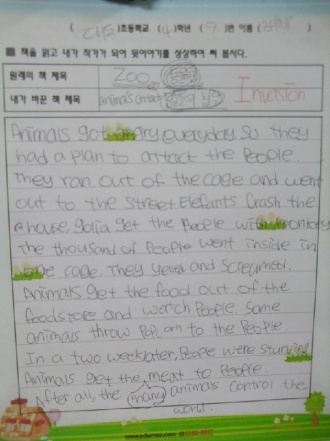 ( 대등 )초등학교 ( 4 )학년 ( 9 )반 이름 (
■ 책을 읽고 내가 작가가 되어 뒷이야기를 상상하여 써 봅시다.
원래의 책 제목 ZOO
내가 바꾼 책 제목 animals attack Invasion
Animals got angry everyday so they
had a plan to attact the People
They ran out of the cage and went
out to the street Elefants Crash the
a house. goria get the People with monkey
The thousand of People went inside in
the cage. They yelled and screamed.
Animals get the food out of the
foodstore and watch People. Some
animals throw PoPcorn to the People
In a two weeks later, People were starving
Animals get the meat to People.
After all, the many animals Control the
world.